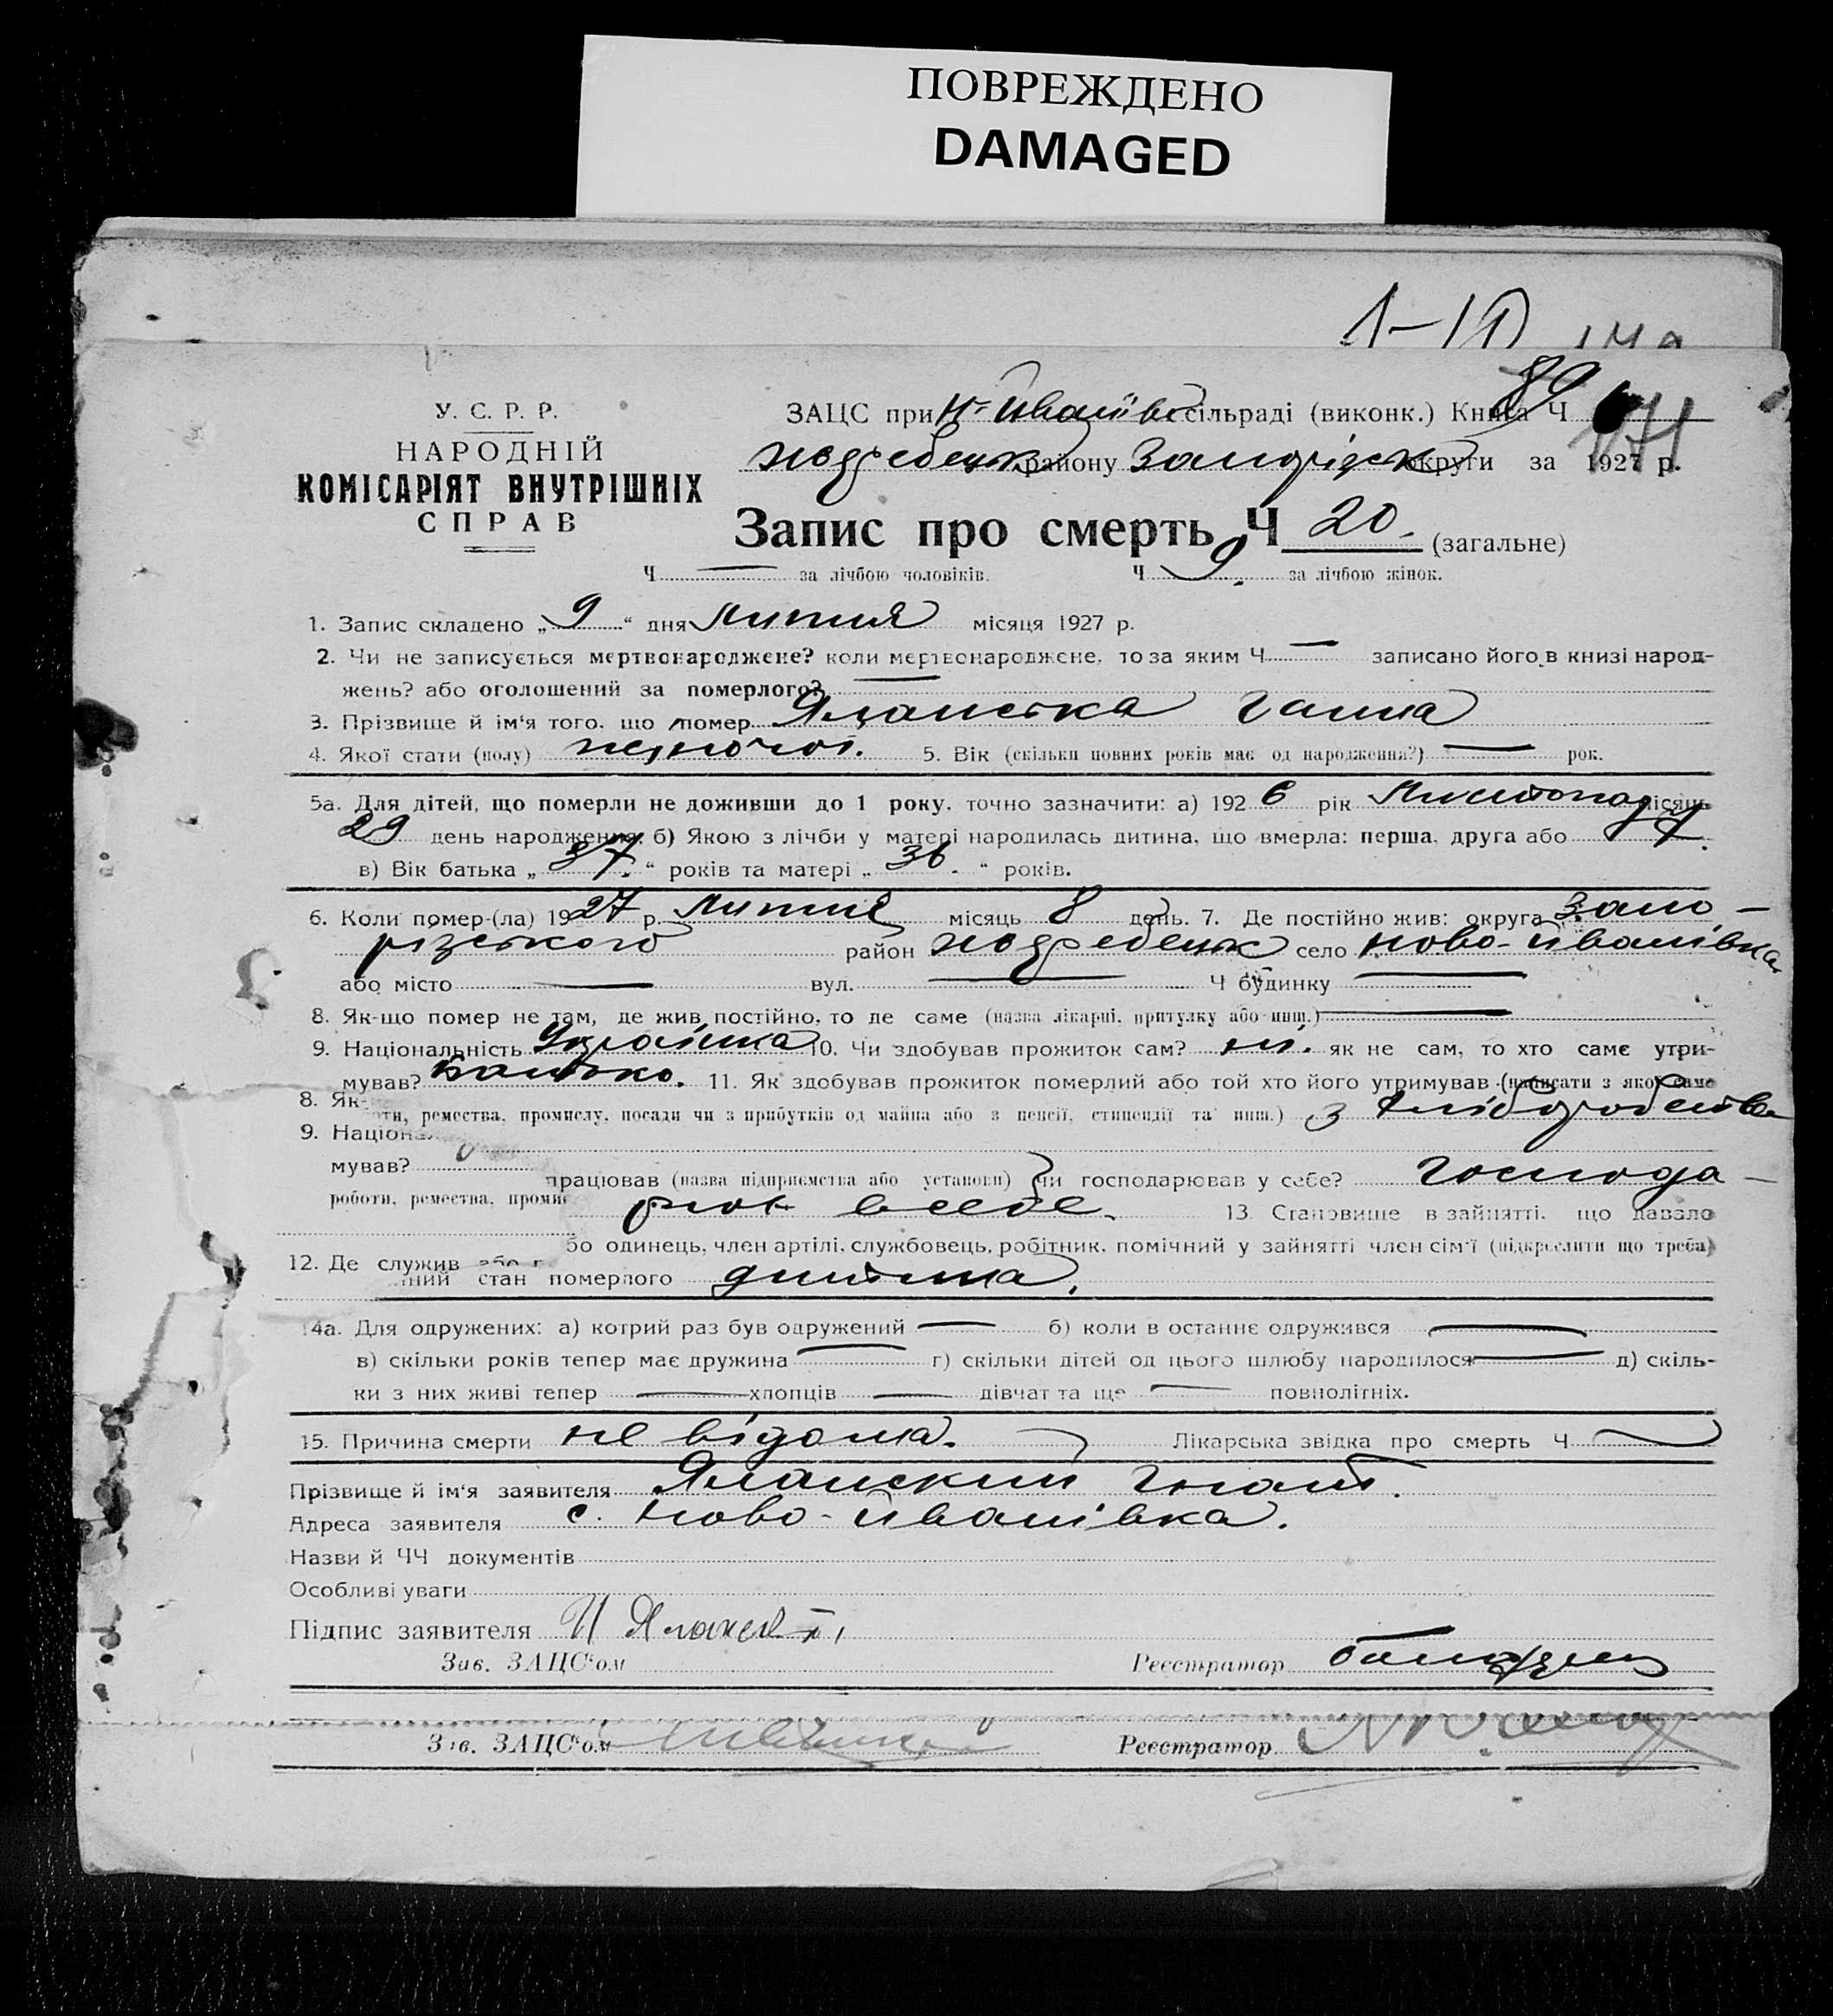 ПОВРЕЖДЕНО
DAMAGED
У. С. Р. Р.
НАРОДНІЙ
КОМІСАРІЯТ ВНУТРІШНІХ
СПРАВ
89
171
ЗАЦС при Н-Иванівс сільраді (виконк.) Книга Ч
району Запорізьк округи за 1927 р.
Запис про смерть Ч 20. (загальне)
Ч — за лічбою чоловіків. Ч 9. за лічбою жінок.
1. Запис складено „ 9 “ дня Липня місяця 1927 р.
2. Чи не записується мертвонароджене? коли мертвонароджене, то за яким Ч — записано його в книзі народ-
жень? або оголошений за померлого? —
3. Прізвище й ім‘я того, що помер Яланська Ганна
4. Якої стати (полу) жіночої. 5. Вік (скільки повних років має од народження?) — рок.
5а. Для дітей, що померли не доживши до 1 року, точно зазначити: а) 192 6 рік Листопад місяць
29 день народження, б) Якою з лічби у матері народилась дитина, що вмерла: перша, друга або 7.
в) Вік батька „ 37. “ років та матері „ 36. “ років.
6. Коли помер-(ла) 19 27 р. Липня місяць 8 день. 7. Де постійно жив: округа Запо-
різського район село Ново-Иванівка
або місто — вул. — Ч будинку —
8. Як-що помер не там, де жив постійно, то де саме (назва лікарні, притулку або инш.) —
9. Національність Українка 10. Чи здобував прожиток сам? ні. як не сам, то хто саме утри-
мував? Батько. 11. Як здобував прожиток померлий або той хто його утримував (написати з якої саме
8. Як-
ти, ремества, промислу, посади чи з прибутків од майна або з пенсії, стипендії та инш.) з хліборобства
9. Націона
мував?
працював (назва підприємства або установи) чи господарював у себе? господа-
роботи, ремества, проми
рюв в себе. 13. Становище в зайнятті, що давало
бо одинець, член артілі, службовець, робітник, помічний у зайнятті член сім‘ї (підкреслити що треба)
12. Де служив або г
ний стан померлого дитина.
14а. Для одружених: а) котрий раз був одружений — б) коли в останнє одружився —
в) скільки років тепер має дружина — г) скільки дітей од цього шлюбу народилося — д) скіль-
ки з них живі тепер — хлопців — дівчат та ще — повнолітніх.
15. Причина смерти не відома. Лікарська звідка про смерть Ч —
Прізвище й ім‘я заявителя Яланский Гнат.
Адреса заявителя с. Ново-Иванівка.
Назви й ЧЧ документів
Особливі уваги
Підпис заявителя
Зав. ЗАЦС‘ом Реєстратор
Зав. ЗАЦС‘ом Реєстратор